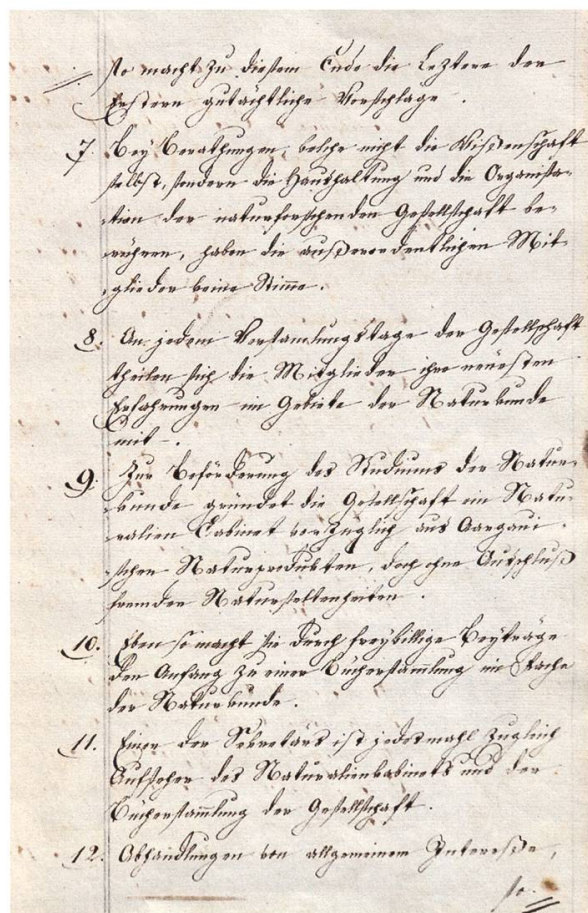 so macht zu diesem Ende die Leztere den
Erstern gutächtliche Vorschläge.
7. Bey Berathungen, welche nicht die Wißenschaft
selbst, sondern die Haushaltung und die Organisa-
tion der naturforschenden Gesellschaft be-
rühren, haben die außerordentlichen Mit-
glieder keine Stimme.
8. An jedem Versamlungstage der Gesellschaft
theilen sich die Mitglieder ihre neuesten
Erfahrungen im Gebiete der Naturkunde
mit.
9. Zur Beförderung des Studiums der Natur-
kunde gründet die Gesellschaft ein Natu-
ralien Cabinet vorzüglich aus Aargaui-
schen Naturprodukten, doch ohne Ausschluß
fremder Naturseltenheiten.
10. Eben so macht sie durch freywillige Beyträge
den Anfang zu einer Büchersammlung im Fache
der Naturkunde.
11. Einer der Sekretärs ist jedesmahl zugleich
Aufseher des Naturalienkabinets und der
Büchersammlung der Gesellschaft.
12. Abhandlungen von allgemeinem Intereße,
so